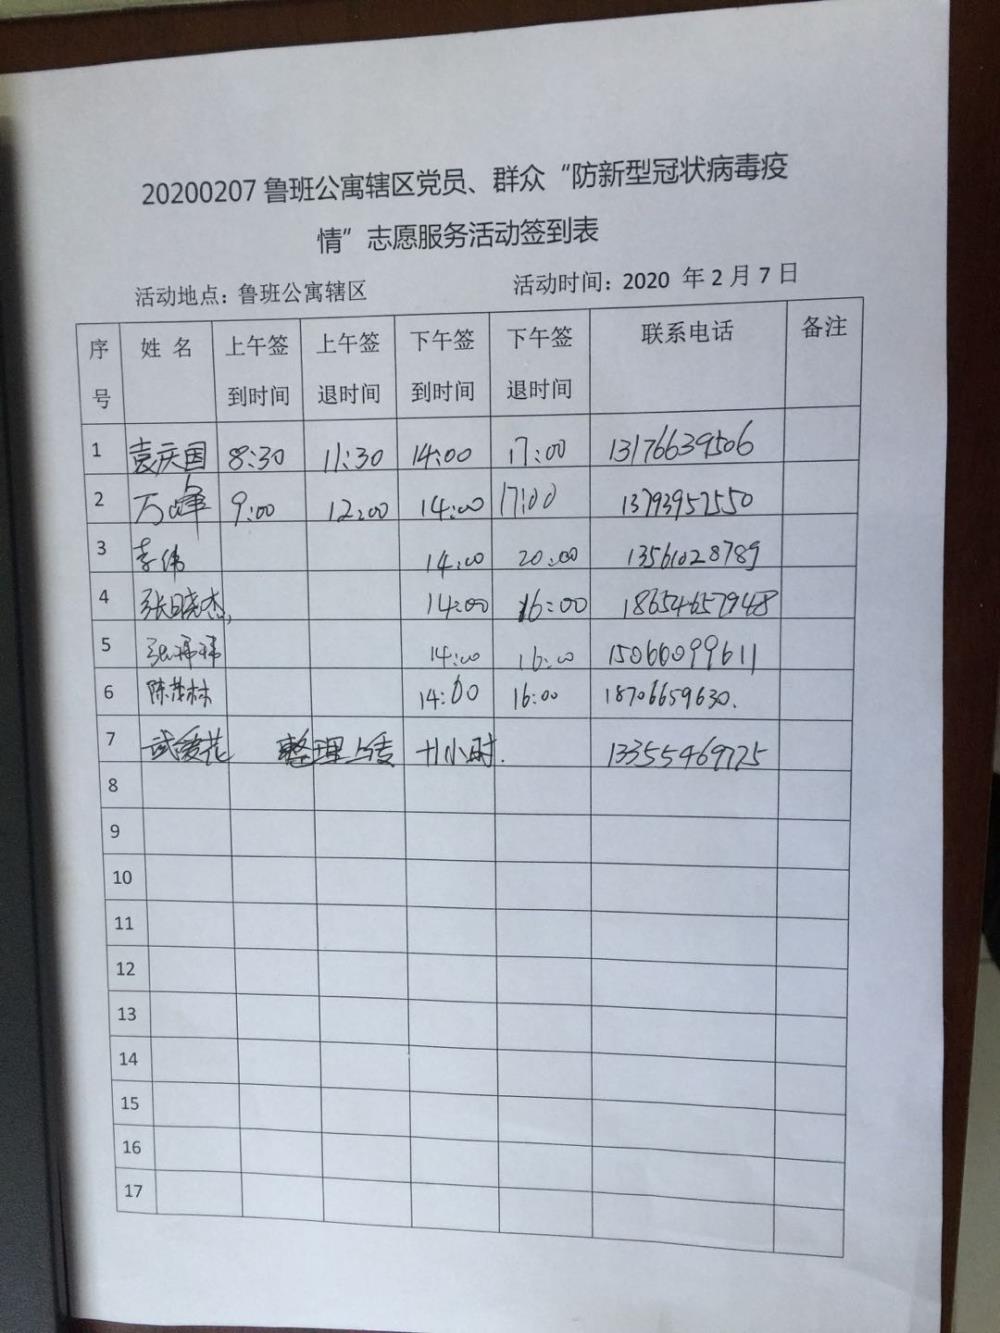 20200207 鲁班公寓辖区党员、群众“防新型冠状病毒疫
情”志愿服务活动签到表
活动地点：鲁班公寓辖区 活动时间：2020 年 2 月 7 日
序号 姓 名 上午签到时间 上午签退时间 下午签到时间 下午签退时间 联系电话 备注
1 袁庆国 8:30 11:30 14:00 17:00 13176639506
2 万峰 9:00 12:00 14:00 17:00 13793957550
3 李伟 14:00 20:00 13561028789
4 张晓杰 14:00 16:00 18654657948
5 14:00 16:00 15066099611
6 陈茂林 14:00 16:00 18706659630.
7 武爱花 整理上委 十小时. 13355469725
8
9
10
11
12
13
14
15
16
17